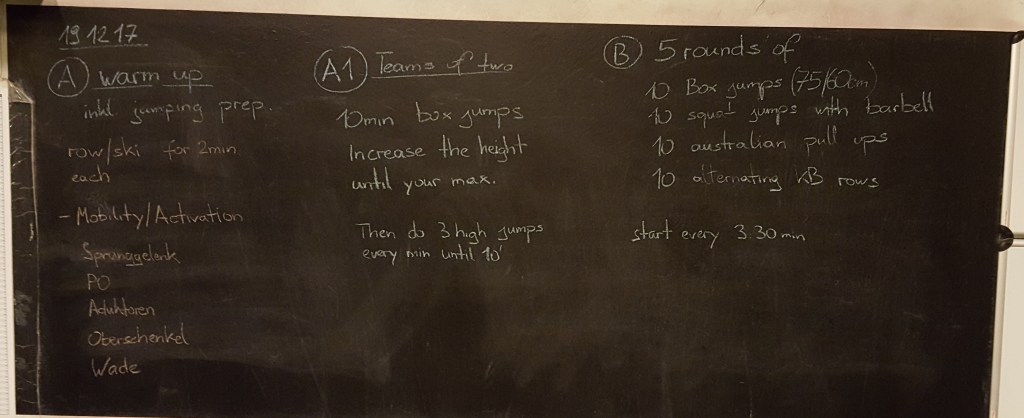 19 12 17
A warm up
inkl. jumping prep.
row/ski for 2min
each
- Mobility/Activation
Sprunggelenk
PO
Aduktoren
Oberschenkel
Wade
A1 Teams of two
10min box jumps
Increase the height
until your max.
Then do 3 high jumps
every min until 10'
B 5 rounds of
10 Box jumps (75/60cm)
10 squat jumps with barbell
10 australian pull ups
10 alternating KB rows
start every 3.30 min